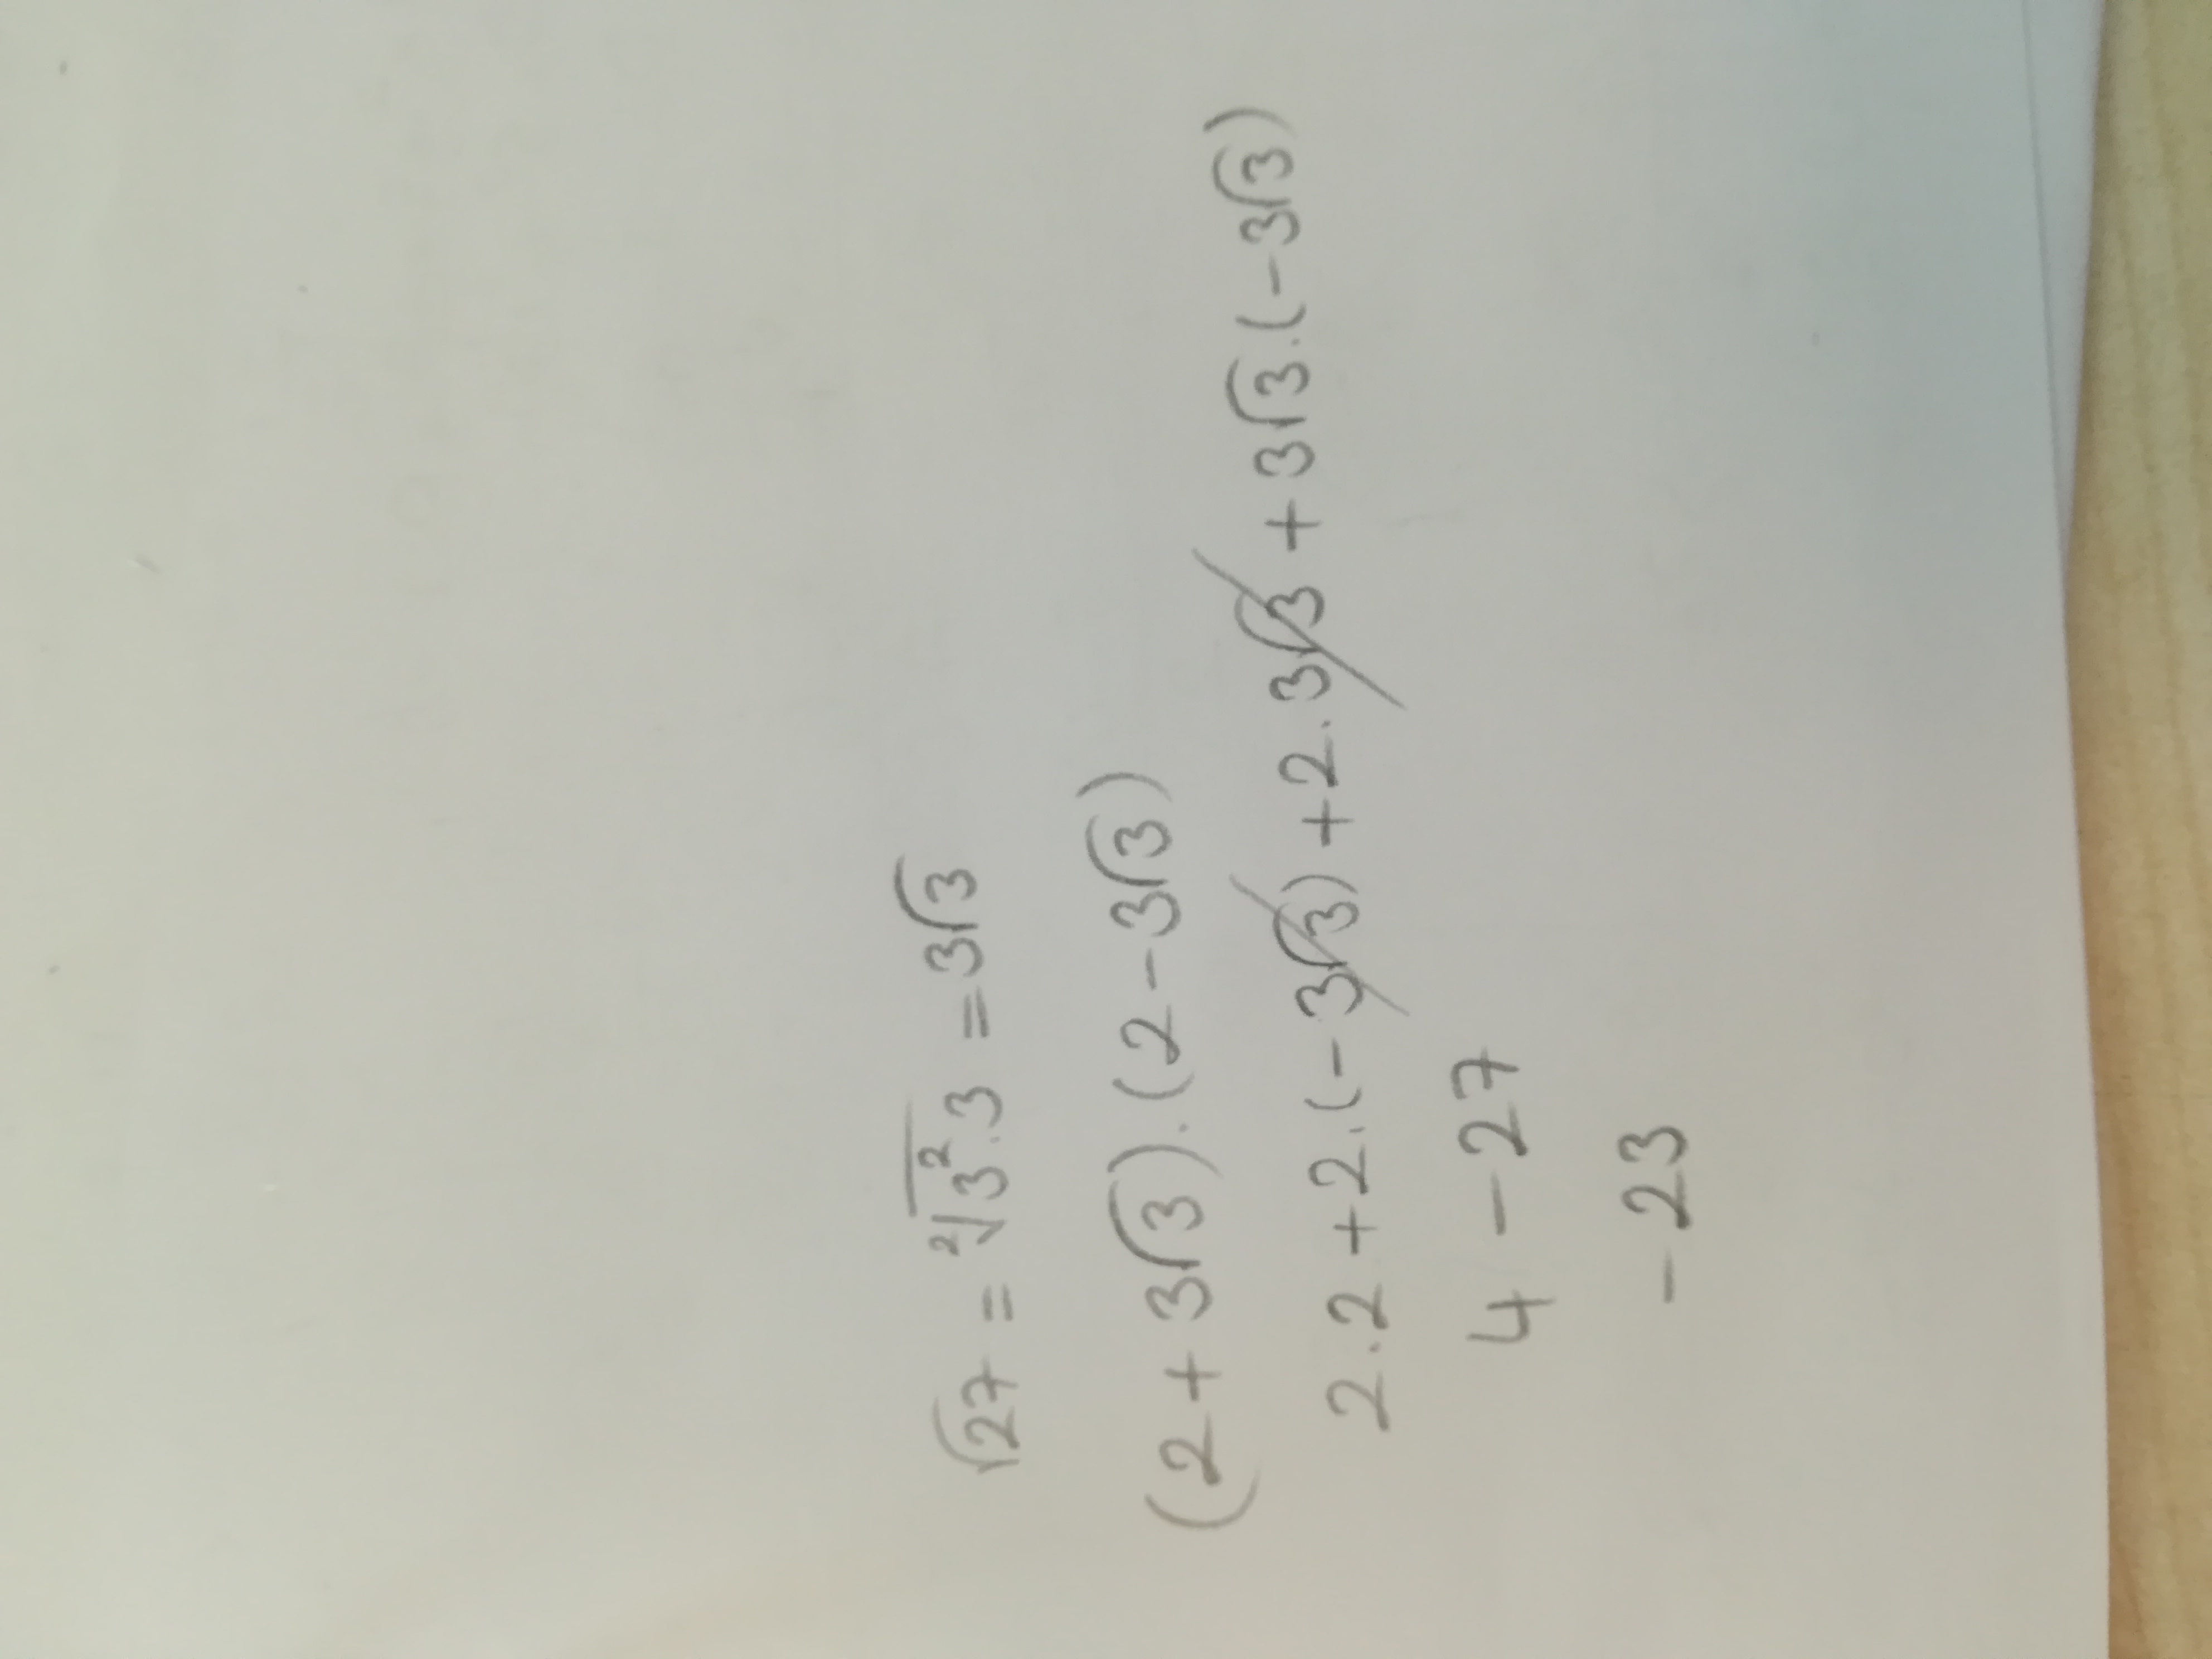 √27 = ²√3².3 = 3√3
(2 + 3√3).(2 - 3√3)
2.2 + 2.(-3√3) + 2.3√3 + 3√3.(-3√3)
4 - 27
- 23